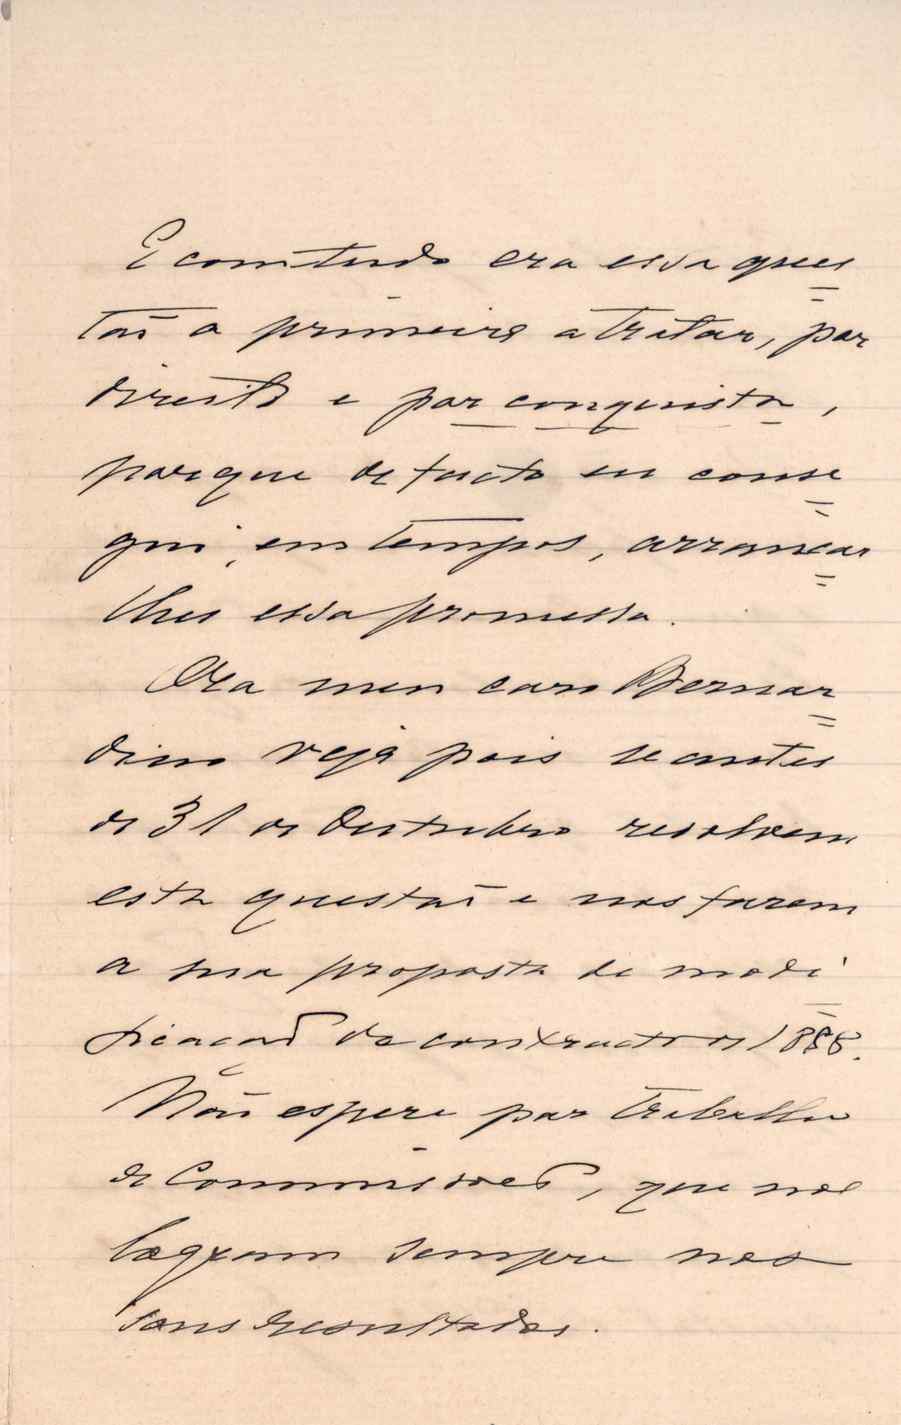 E comtudo era essa ques
taõ a primeira a tratar, por
direito e por conquista,
porque de facto eu conse
gui, em tempos, arrancar
lhes essa promessa.
Ora meu caro Bernar
dino veja pois se antes
de 31 de Outubro resolvem
esta questaõ e nos fazem
a sua proposta de modi
ficaçaõ do contracto de 1888.
Naõ espere por trabalho
de Commissoes, que nos
sempre nos
seus resultados.